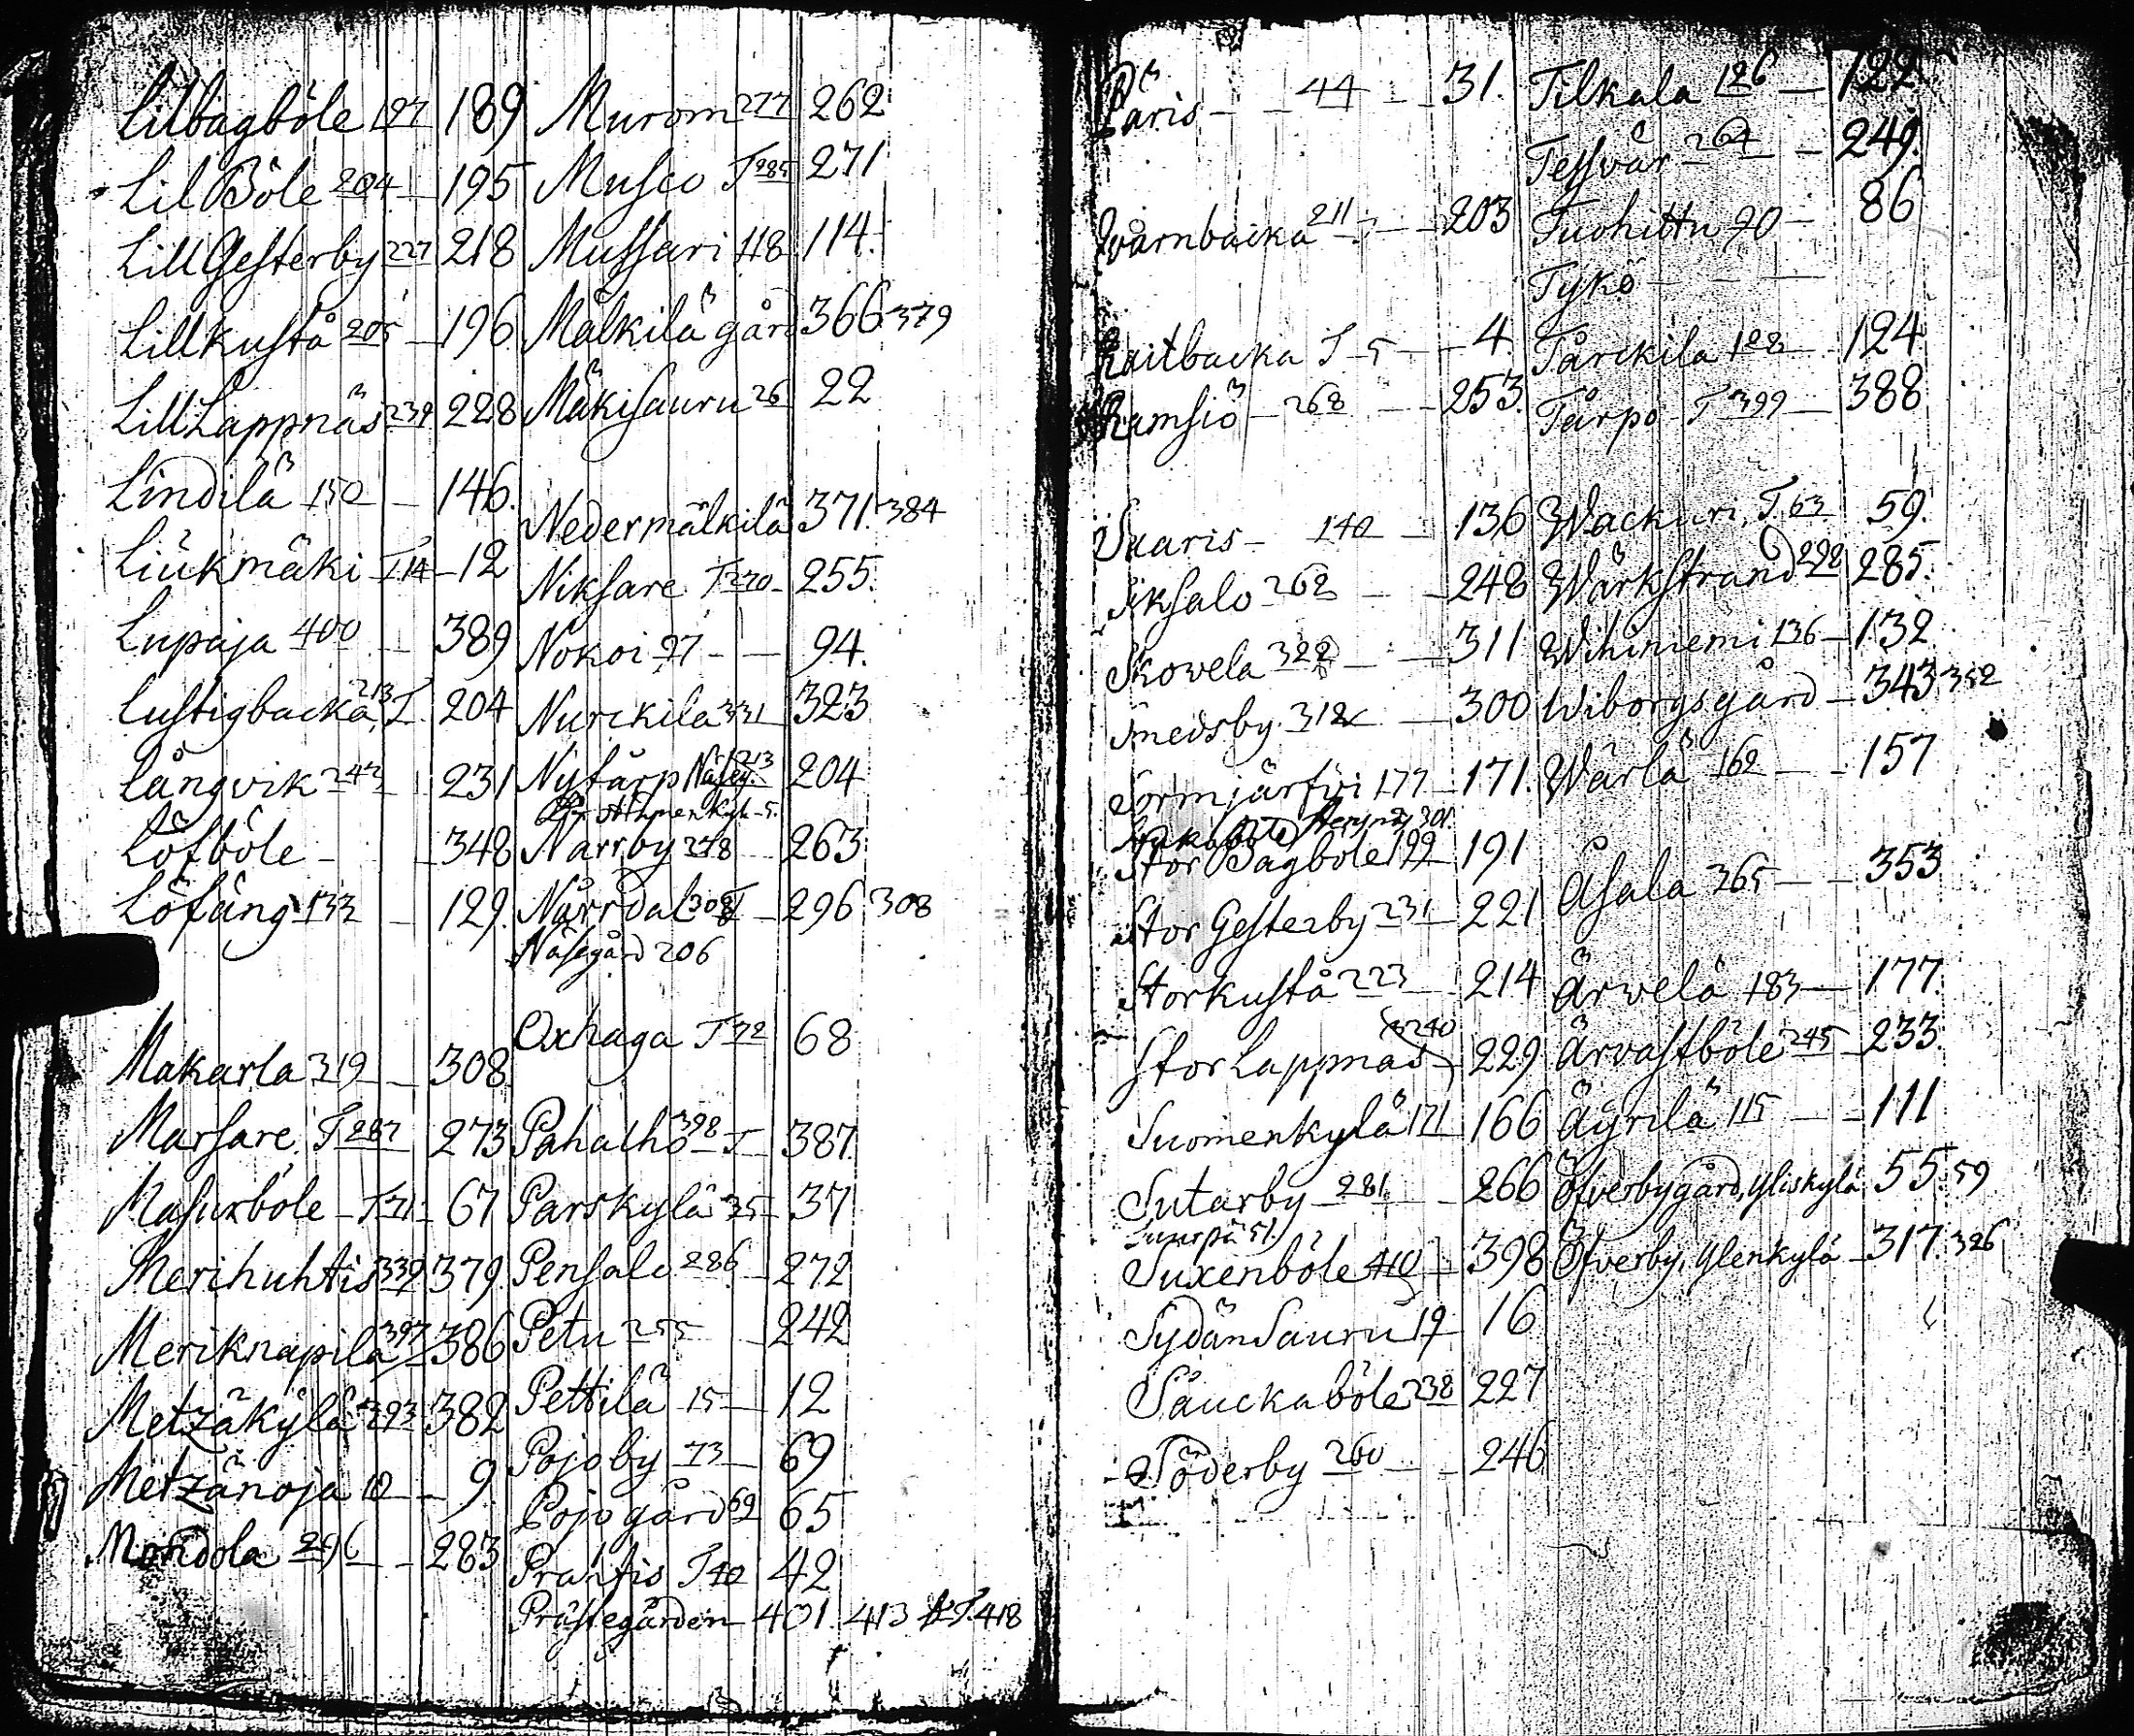 Lilbagböle 197 189
Lil Böle 204 195
Lill Gesterby 227 218
Lillkustå 205 196
Lill Lappnäs 239 228
Lindilä 150 146.
Liukmäki T 14 12
Lupaja 400 389
Lustigbacka 213 T. 204
Långvik 242 231
Löfböle 348
Löfäng 133 129.
Makarla 319 308
Marsare T 287 273
Masurböle T 71 67
Merihuhtis 339 379
Meriknapila 397 386
Metzäkylä 393 382
Metzänoja 10 9
Mondola 296 283
Murom 277 262
Musco T 285 271
Mussari 118 114.
Mälkilä gård 366 379
Mäkisauru 26 22
Nedermälkilä 371. 384
Niksare T 270 255.
Nokoi 97 94.
Nurckila 331 323
Nytårp Näseg. 213 204
Närrby 278 263
Närrdal 308 T 296 308
Näsegård 206
Oxhaga T 72 68
Pahalho 398 T 387
Parskylä 35 37
Pensalo 286 272
Petu 255 242
Pettilä 15 12
Pojoby 73 69
Pojo gård 69 65
Prahtis T 40 42
Prästegården 401. 413 T. 418
Päris 44 31.
Qvarnbacka 211 203
Raitbacka T 5 4.
Ramsiö 268 253.
Saaris 140 136
Siksalo 262 248
Skovela 322 311
Smedsby 312 300
Sormjärfvi 177 171.
Stor Bagböle 199 191
Stor Gesterby 231 221
Storkustå 223 214
Stor Lappnäs 240 229
Suomenkylä 171 166
Sutarby 281 266
Suxenböle 410 398
Sydänsauru 19 16
Sauckaböle 238 227
Söderby 260 246
Tilkala 126 122
Tessvår 264 249.
Tuohittu 90 86
Tykö
Tårckila 128 124
Tårpo T 399 388
Wackuri T. 63 59.
Wärkstrand 298 285.
Wihiniemi 136 132
Wiborgsgård 343 352
Wärlä 162 157
Åsala 365 353
Ärvelä 183 177.
Ärvastböle 245 233.
Äyrilä 115 111
Öfverbygård, Yliskylä 55. 59
Öfverby, Ylenkylä 317 326